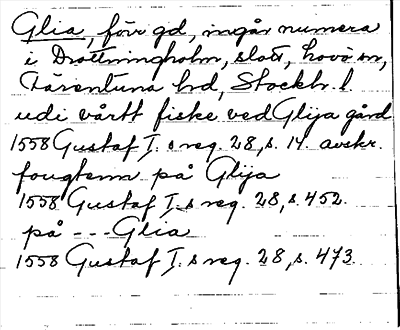 Glia, förr gd, ingår numera
i Drottningholm, slott, Lovö sn,
Färentuna hd, Stockh. l.
udi vårtt fiske ved Glija gård
1558 Gustaf I. s reg. 28, s. 14. avskr.
fougtenn på Glija
1558 Gustaf I. s reg. 28, s. 452.
på --- Glia
1558 Gustaf I. s reg. 28, s. 473.